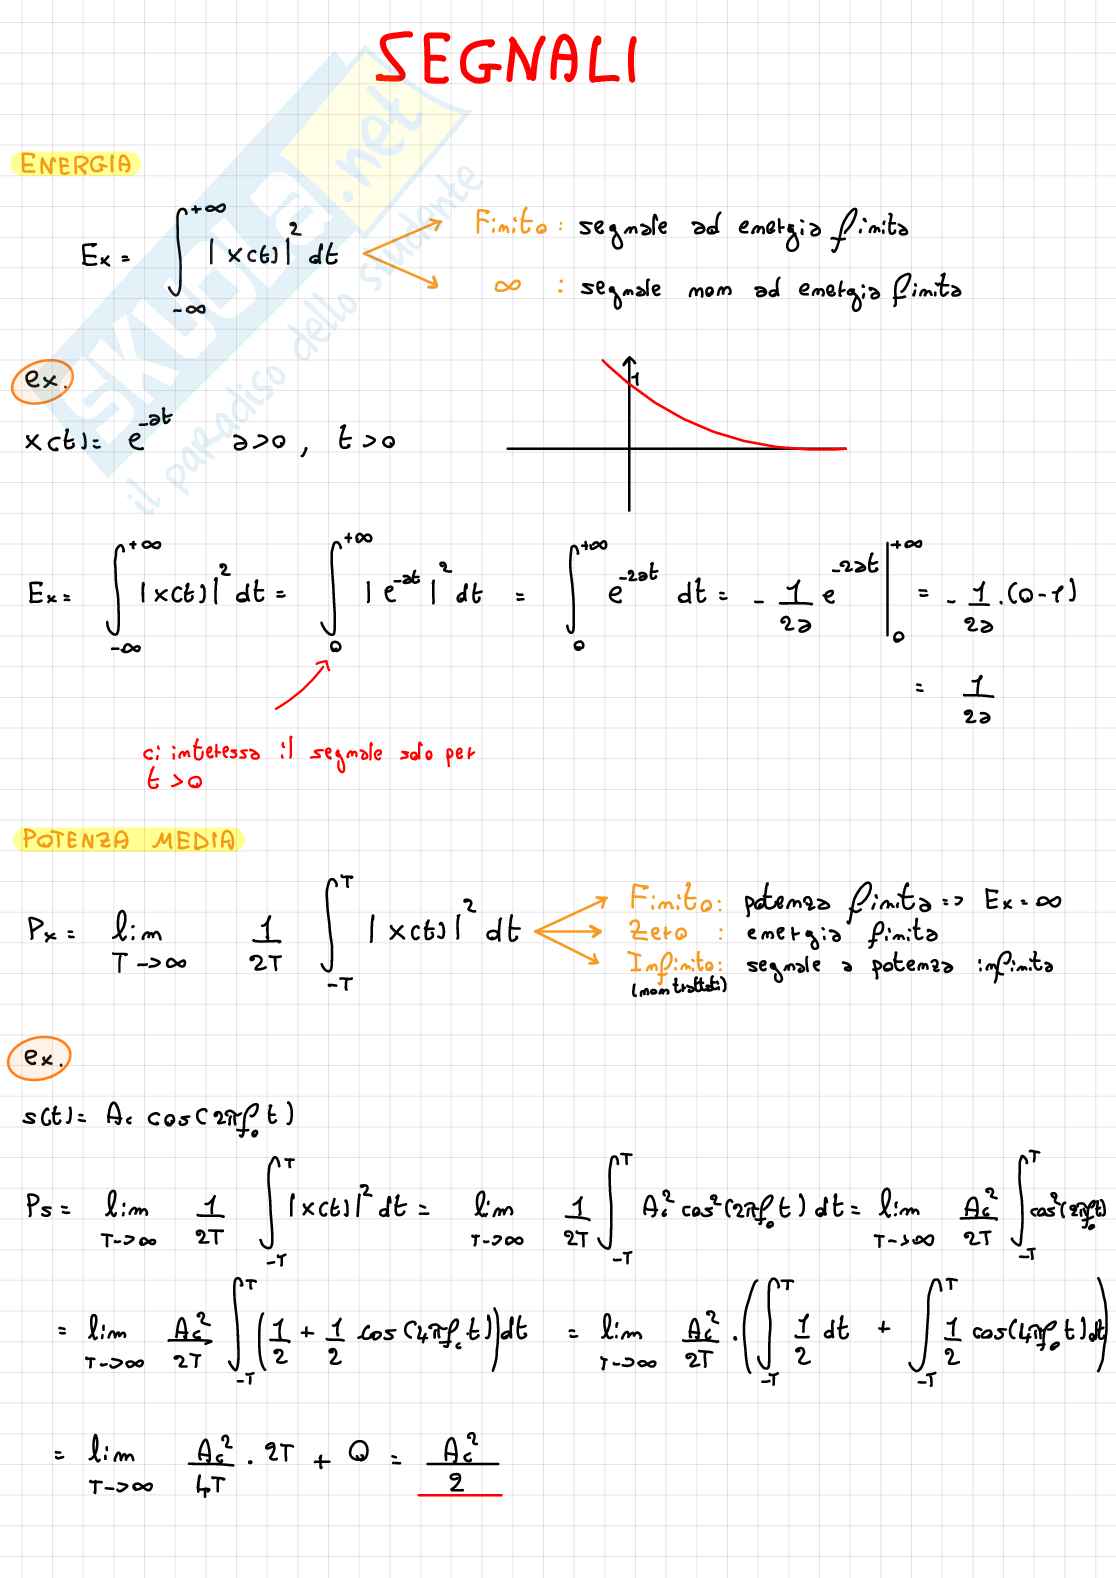 SEGNALI
SKUOLA.net
il paradiso dello studente
ENERGIA
Ex = ∫_{-∞}^{+∞} |x(t)|² dt
Finito : segnale ad energia finita
∞ : segnale non ad energia finita
ex.
x(t) = e^{-at} a>0 , t>0
1
Ex = ∫_{-∞}^{+∞} |x(t)|² dt = ∫_{0}^{+∞} |e^{-at}|² dt = ∫_{0}^{+∞} e^{-2at} dt = - 1/2a e^{-2at} |_{0}^{+∞} = - 1/2a · (0-1)
= 1/2a
ci interessa il segnale solo per
t > 0
POTENZA MEDIA
Px = lim_{T->∞} 1/2T ∫_{-T}^{T} |x(t)|² dt
Finito : potenza finita => Ex = ∞
Zero : energia finita
Infinito : segnale a potenza infinita
(non trattati)
ex.
s(t) = Ac cos(2πf₀t)
Ps = lim_{T->∞} 1/2T ∫_{-T}^{T} |x(t)|² dt = lim_{T->∞} 1/2T ∫_{-T}^{T} Ac² cos²(2πf₀t) dt = lim_{T->∞} Ac²/2T ∫_{-T}^{T} cos²(2πf₀t)
= lim_{T->∞} Ac²/2T ∫_{-T}^{T} (1/2 + 1/2 cos(4πf_c t)) dt = lim_{T->∞} Ac²/2T · (∫_{-T}^{T} 1/2 dt + ∫_{-T}^{T} 1/2 cos(4πf₀t) dt)
= lim_{T->∞} Ac²/4T · 2T + 0 = Ac²/2